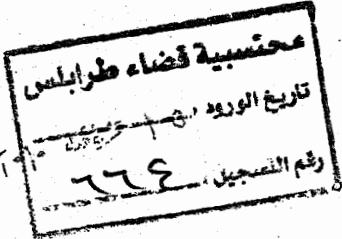 محتسبية قضاء طرابلس
تاريخ الورود
رقم التسجيل ٦٦٤